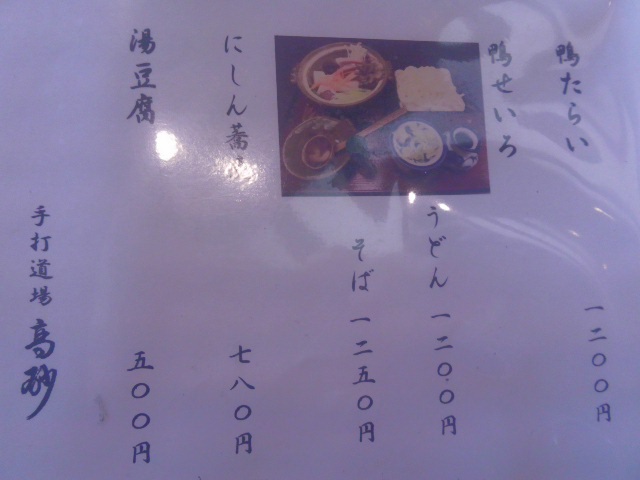 鴨たらい 一二〇〇円
鴨せいろ
うどん 一二〇〇円
そば 一二五〇円
にしん蕎 七八〇円
湯豆腐 五〇〇円
手打道場 高砂